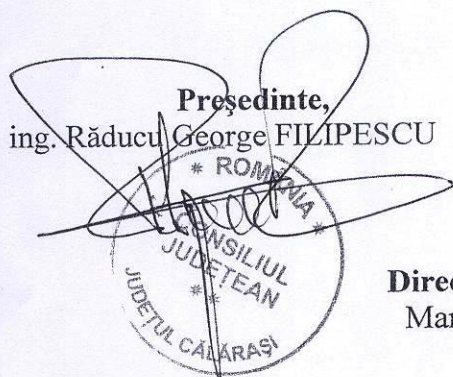 Preşedinte,
ing. Răducu George FILIPESCU
* ROMÂNIA *
CONSILIUL
JUDEŢEAN
* *
JUDEŢUL CĂLĂRAŞI
Direc
Mar